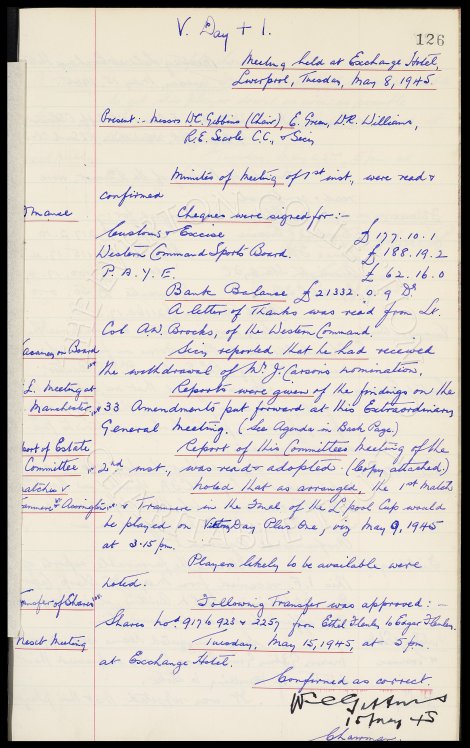 V. Day + 1.
126
Meeting held at Exchange Hotel,
Liverpool, Tuesday, May 8, 1945.
Present:- Messrs W.C. Gibbins (Chair), E. Green, W.R. Williams,
R.E. Searle C.C., & Secy
Minutes of Meeting of 1st inst, were read &
confirmed
Finance
Cheques were signed for:-
Customs & Excise £177.10.1
Western Command Sports Board. £188.19.2
P. A. Y. E. £ 62.16.0
Bank Balance £21332.0.9 Dr
A letter of Thanks was read from Lt.
Col A.W. Brocks, of the Western Command.
Vacancy on Board
Secy reported that he had received
the withdrawal of Mr J. Carsons nomination,
F.L. Meeting at
Reports were given of the findings on the
Manchester
33 Amendments put forward at this Extraordinary
General Meeting. (See Agenda in Back Page)
Report of Estate
Report of this Committees Meeting of the
Committee
2nd inst., was read & adopted (Copy attached)
Matches v
Noted that as arranged, the 1st Match
Tranmere & Accrington
v Tranmere in the Final of the L'pool Cup would
be played on Day Plus One, viz May 9, 1945
at 3.15 pm.
Players likely to be available were
noted.
Transfer of Shares
Following Transfer was approved:-
Shares nos 9176 923 & 2257 from Ethel to Edgar
Next Meeting
Tuesday, May 15, 1945, at 5 pm.
at Exchange Hotel.
Confirmed as correct.
W C Gibbins
15 May 45
Chairman.